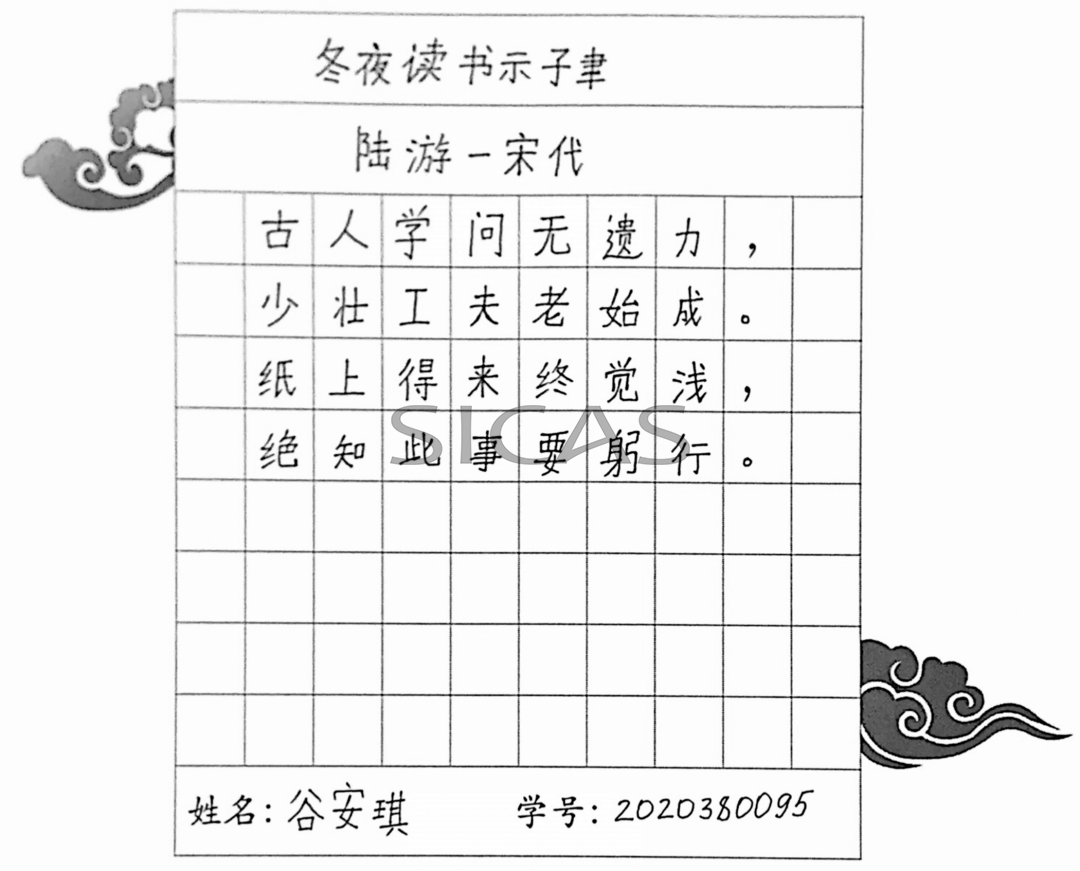 冬夜读书示子聿
陆游－宋代
古人学问无遗力，
少壮工夫老始成。
纸上得来终觉浅，
绝知此事要躬行。
SICAS
姓名：谷安琪 学号：2020380095